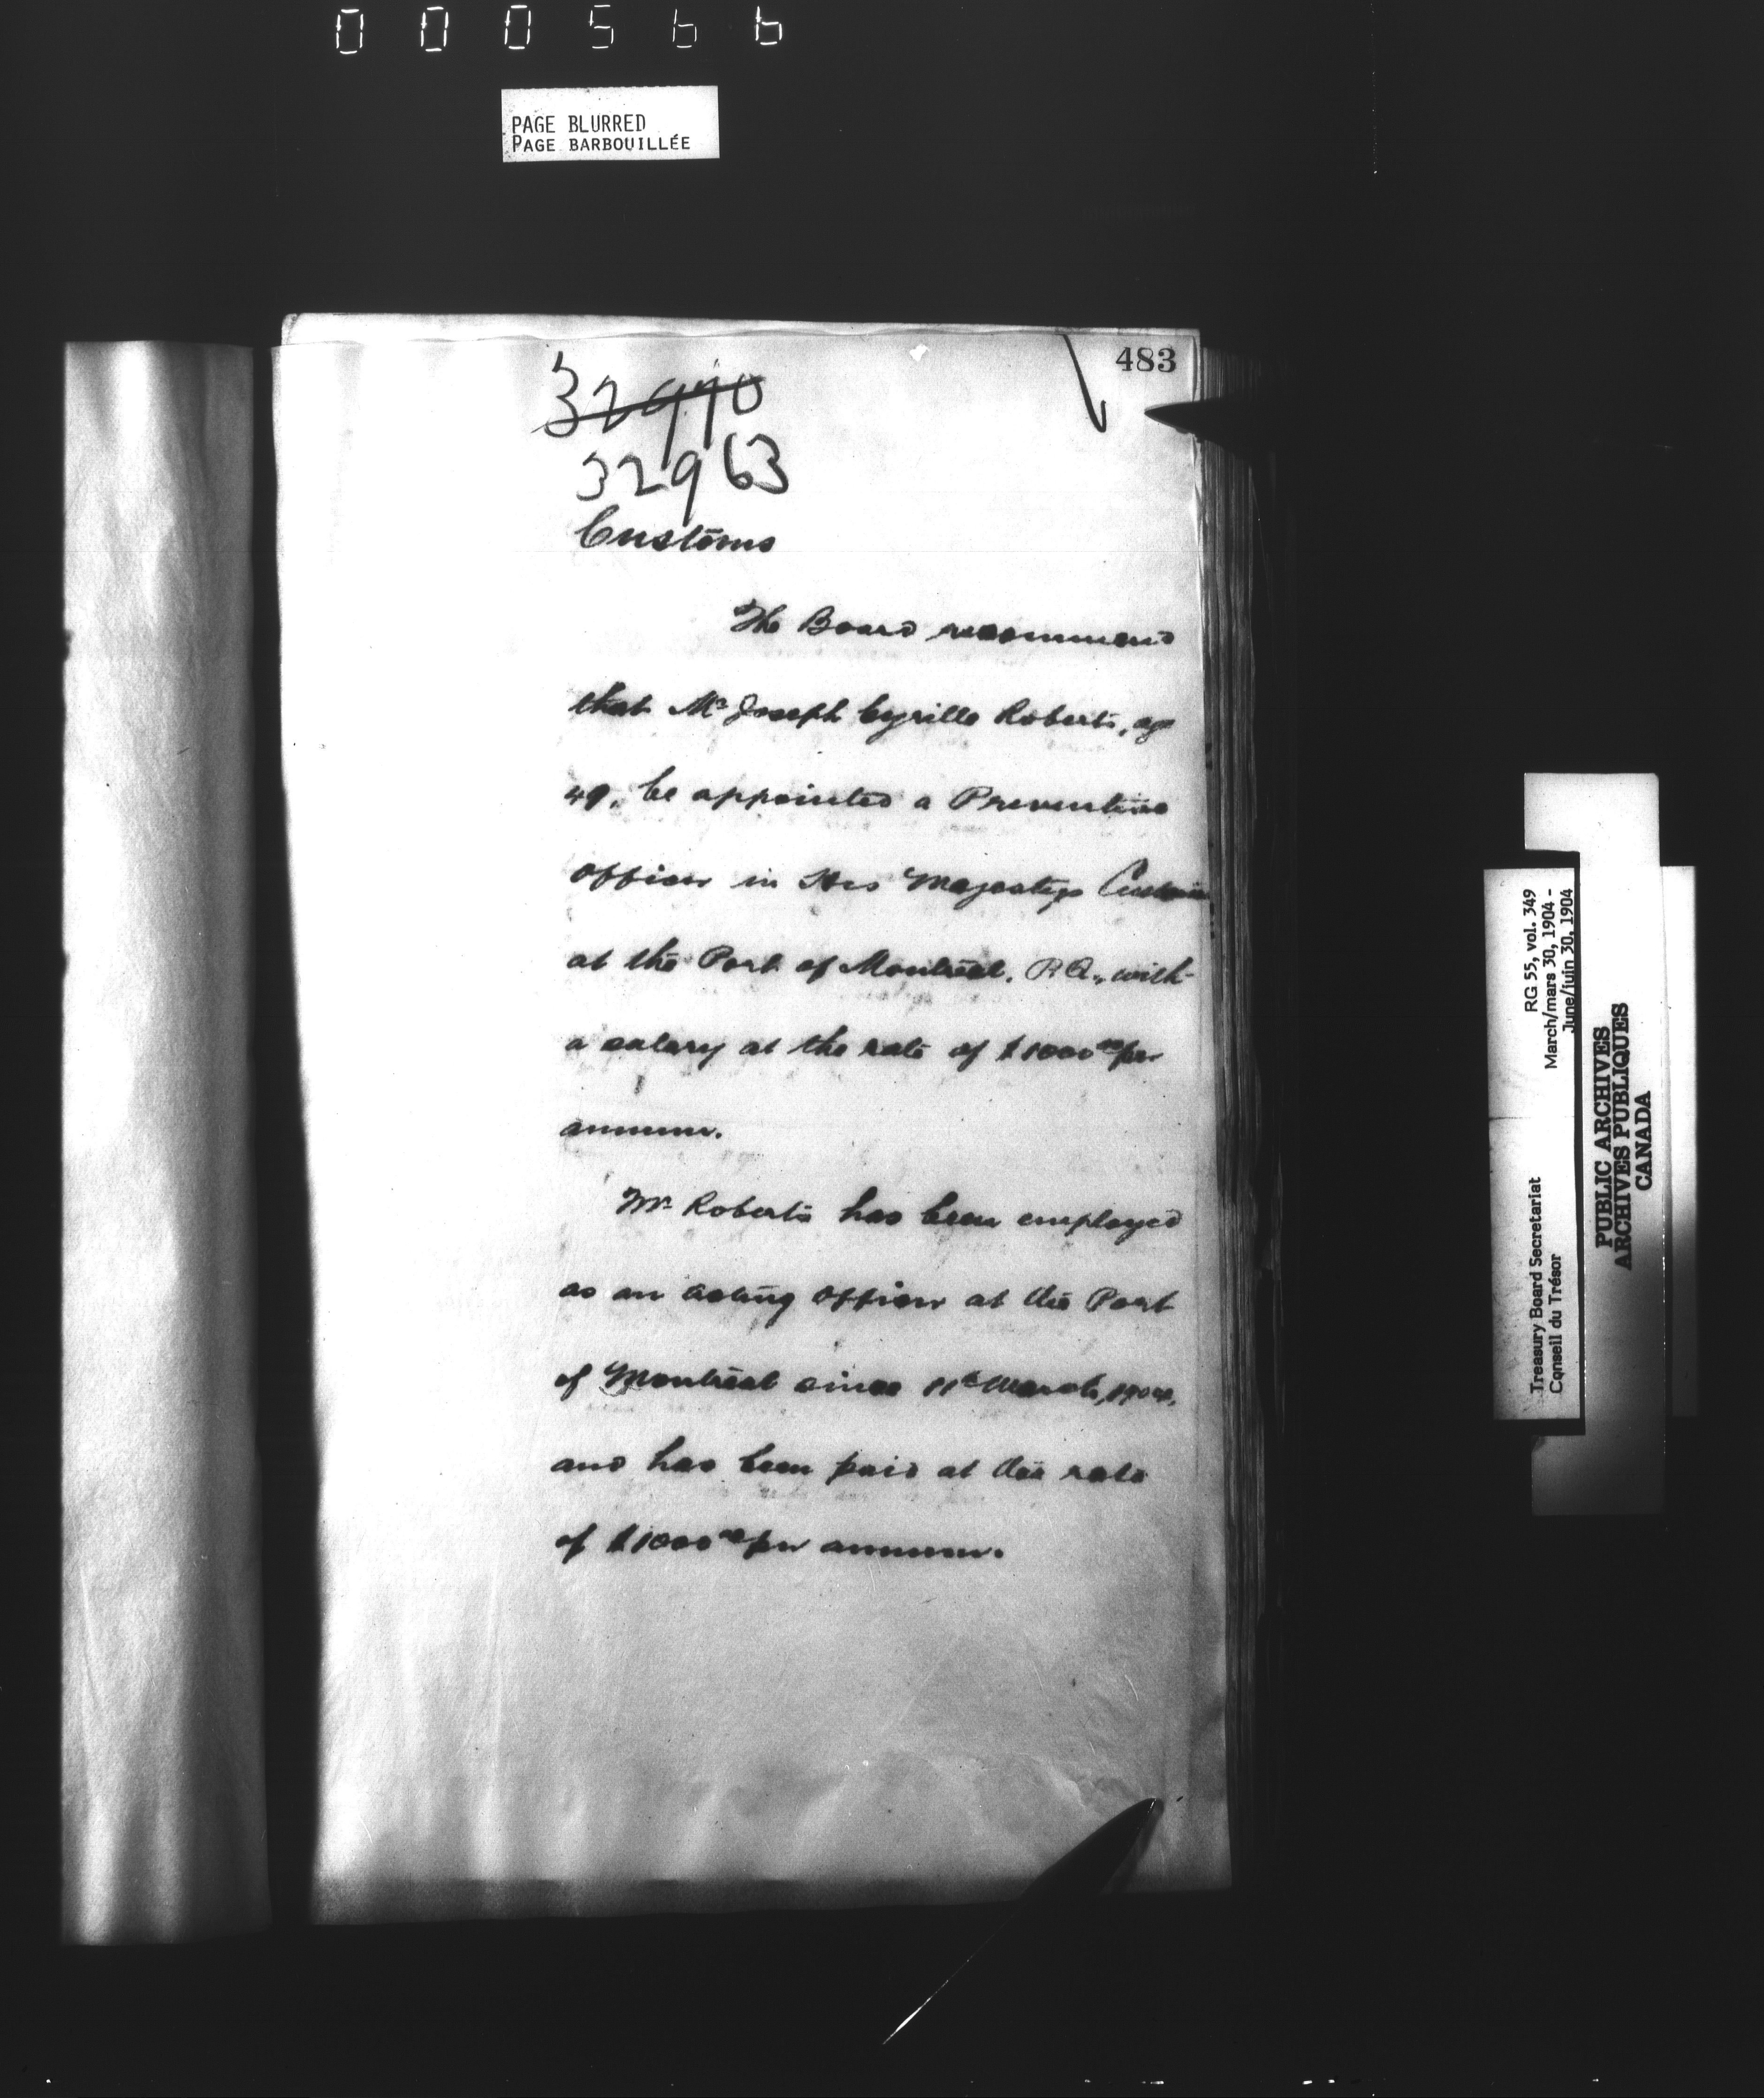 000566
PAGE BLURRED
PAGE BARBOUILLÉE
483
32970
32963
Customs
The Board recommend
that Mr Joseph Cyrille Roberts, age
49, be appointed a Preventive
Officer in His Majestys Customs
at the Port of Montreal, P.Q., with
a salary at the rate of $1000 00 per
annum.
Mr Roberts has been employed
as an acting Officer at the Port
of Montreal since 11th March, 1904,
and has been paid at the rate
of $1000 00 per annum.
RG 55, vol. 349
March/mars 30, 1904 -
June/juin 30, 1904
Treasury Board Secretariat
Conseil du Trésor
PUBLIC ARCHIVES
ARCHIVES PUBLIQUES
CANADA